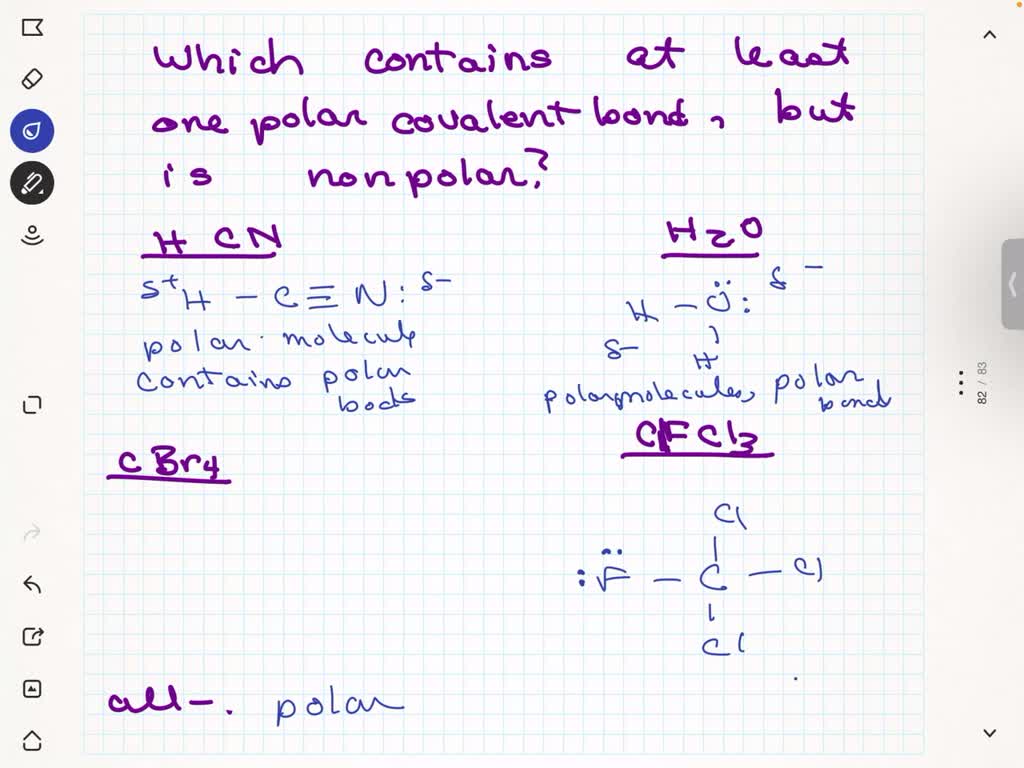 Which contains at least
one polar covalent bond, but
is nonpolar?
H CN
δ+ H – C ≡ N: δ–
polar molecule
contains polar
bods
H2O
δ –
H – O:
δ–
H
polar molecules, polar
bond
CBr4
CFCl3
Cl
:F – C – Cl
Cl
all –. polar
82 / 83